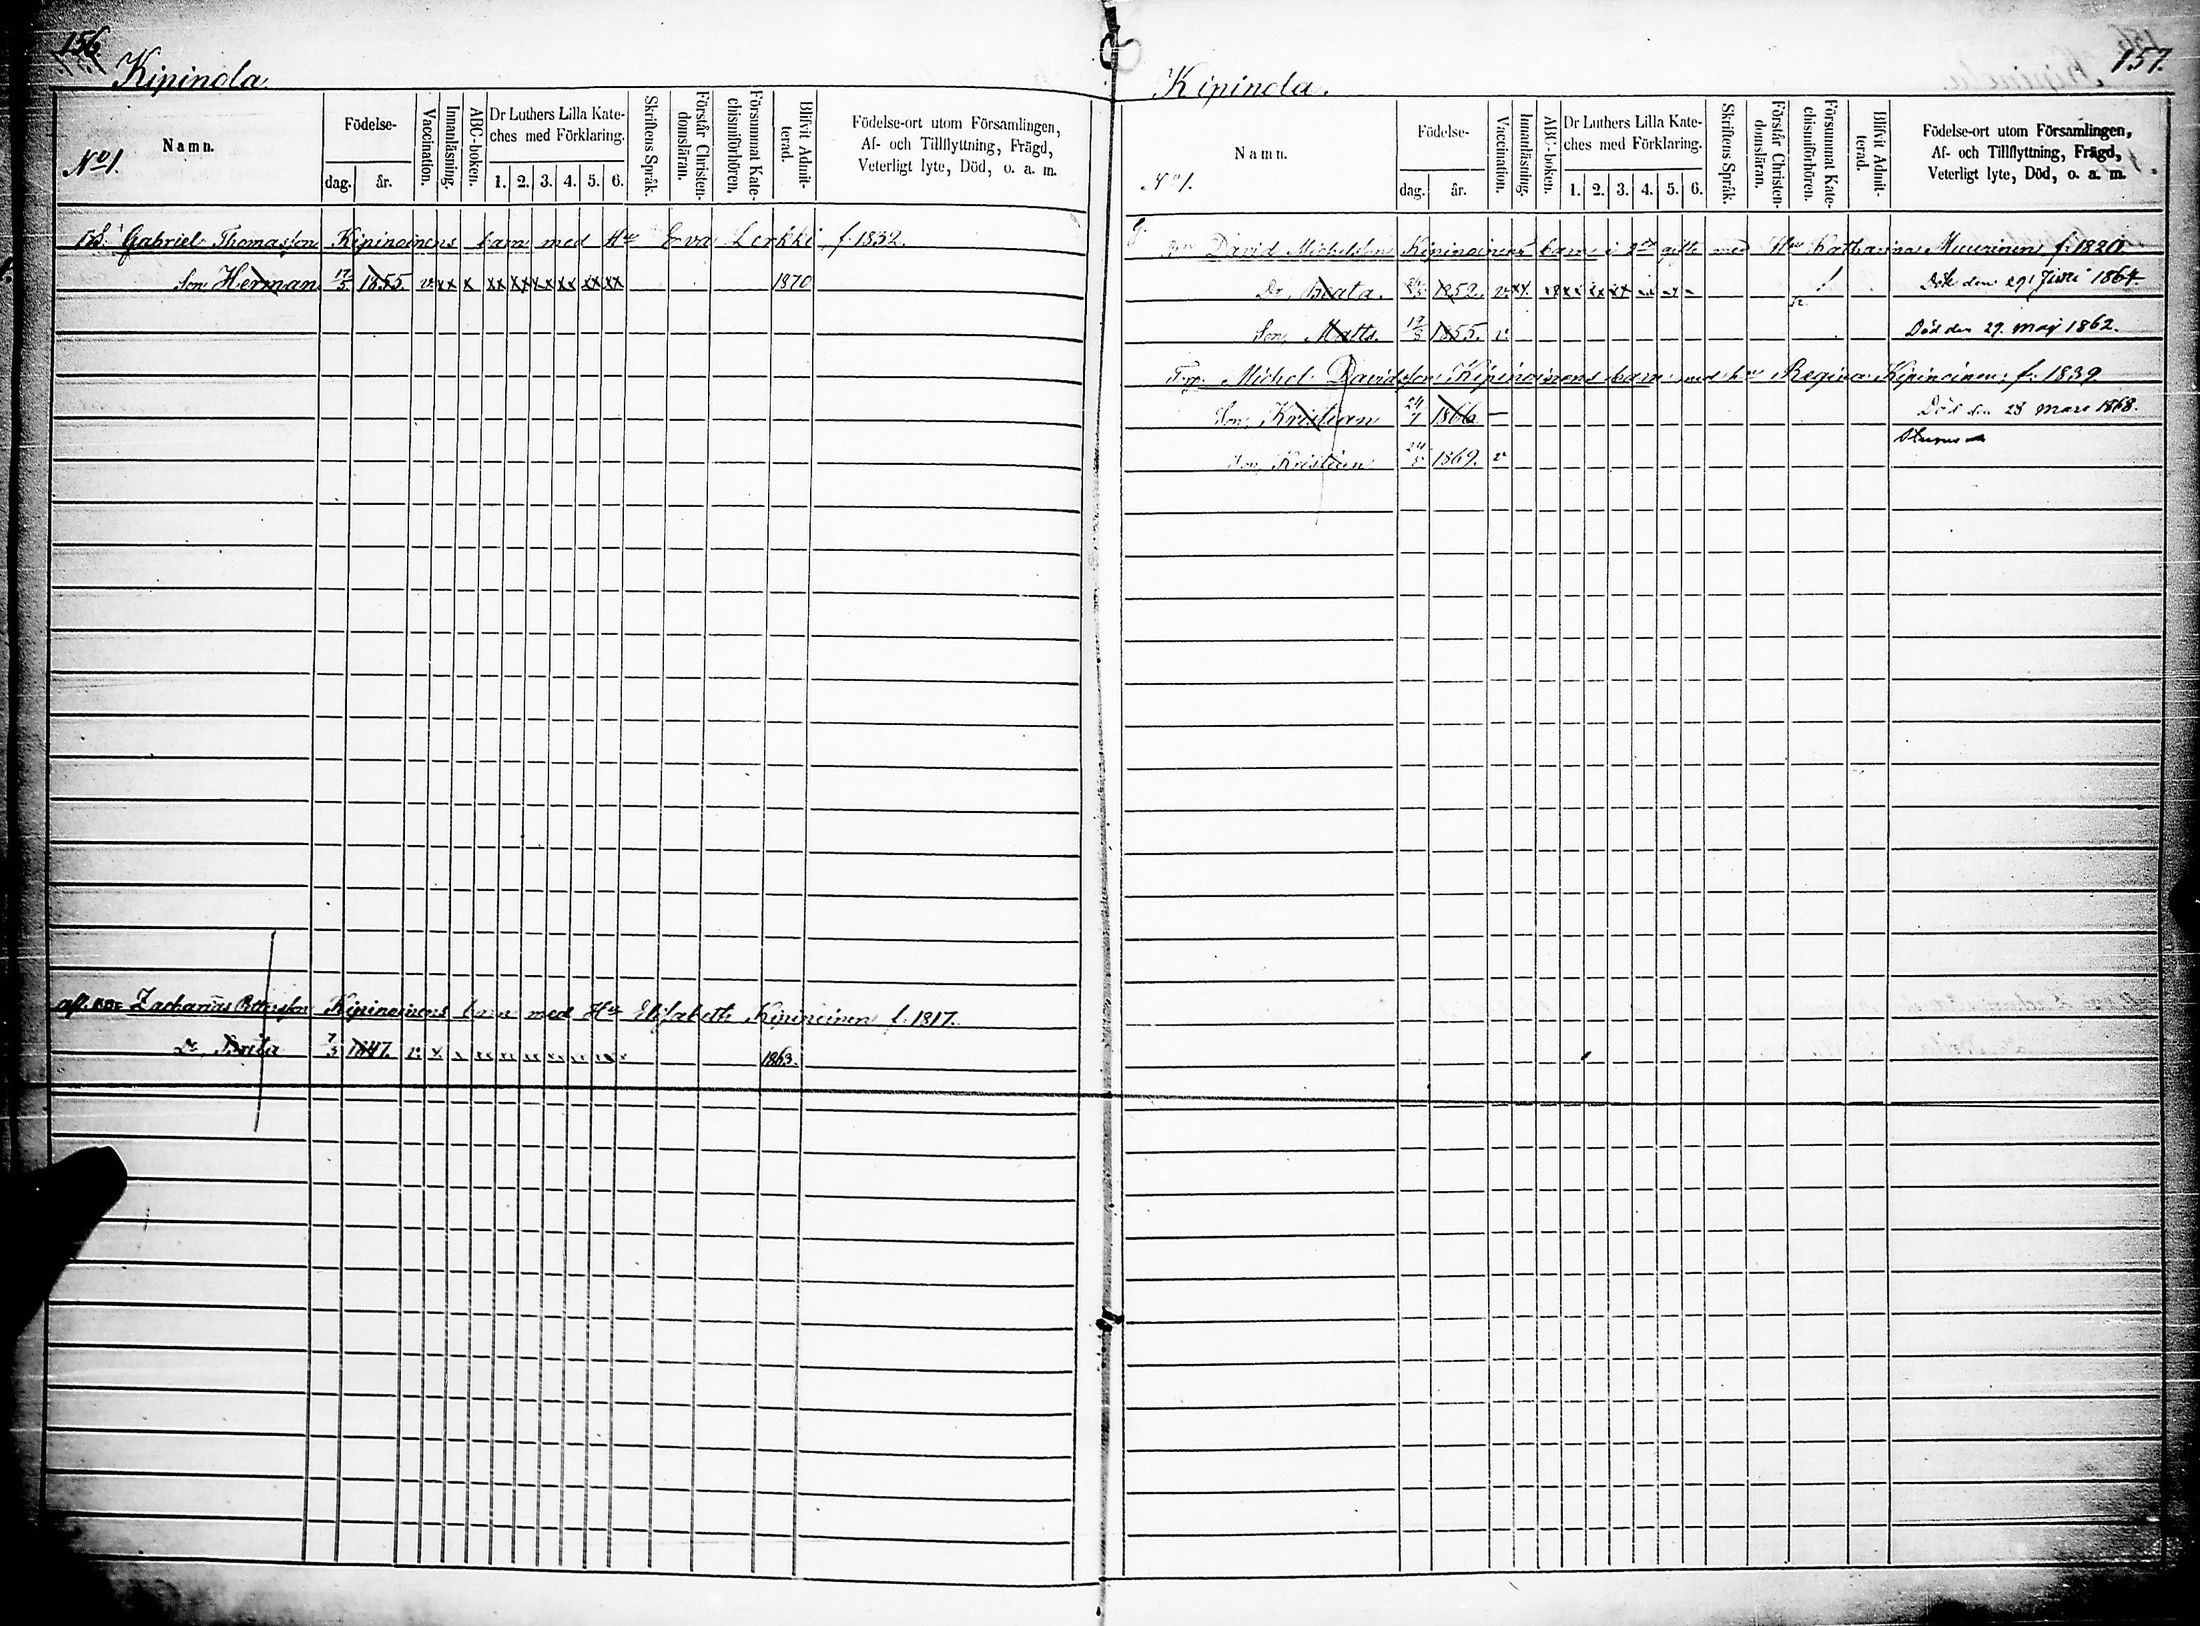 156.
Kipinola.
N:o 1.
Namn.
Födelse-
dag. år.
Vaccination.
Innanläsning.
ABC-boken.
Dr Luthers Lilla Kate-
ches med Förklaring.
1. 2. 3. 4. 5. 6.
Skriftens Språk.
Förstår Christen-
domsläran.
Försummat Kate-
chismiförhören.
Blifvit Admit-
terad.
Födelse-ort utom Församlingen,
Af- och Tillflyttning, Frägd,
Veterligt lyte, Död, o. a. m.
Gabriel Thomasson Kipinoinens barn med Hu Eva Lerkki f. 1832.
Son Herman 17/5 1855 v. xx x xx xx xx xx xx xx 1870
Zacharias Pettersson Kipinoinens barn med Hu Elisabeth Kipinoinen f. 1817.
Dr. Brita 7/3 1847. v. x x xx xx xx xx xx xx 1863.
157.
Kipinola.
N:o 1.
Namn.
Födelse-
dag. år.
Vaccination.
Innanläsning.
ABC-boken.
Dr Luthers Lilla Kate-
ches med Förklaring.
1. 2. 3. 4. 5. 6.
Skriftens Språk.
Förstår Christen-
domsläran.
Försummat Kate-
chismiförhören.
Blifvit Admit-
terad.
Födelse-ort utom Församlingen,
Af- och Tillflyttning, Frägd,
Veterligt lyte, Död, o. a. m.
David Michelsson Kipinoinens barn i 2dra gifte med Hu Katharina Muurinen f. 1820.
Dr. Beata. 1852. v. Död den 29 Juni 1864.
Son, Matts. 19/8 1855. v. Död den 29. maj 1862.
Michel Davidsson Kipinoinens barn med hu Regina Kipinoinen, f. 1839.
Son, Kristian 24/7 1866 — Död den 28 mars 1868.
Son, Kristian 1869. v